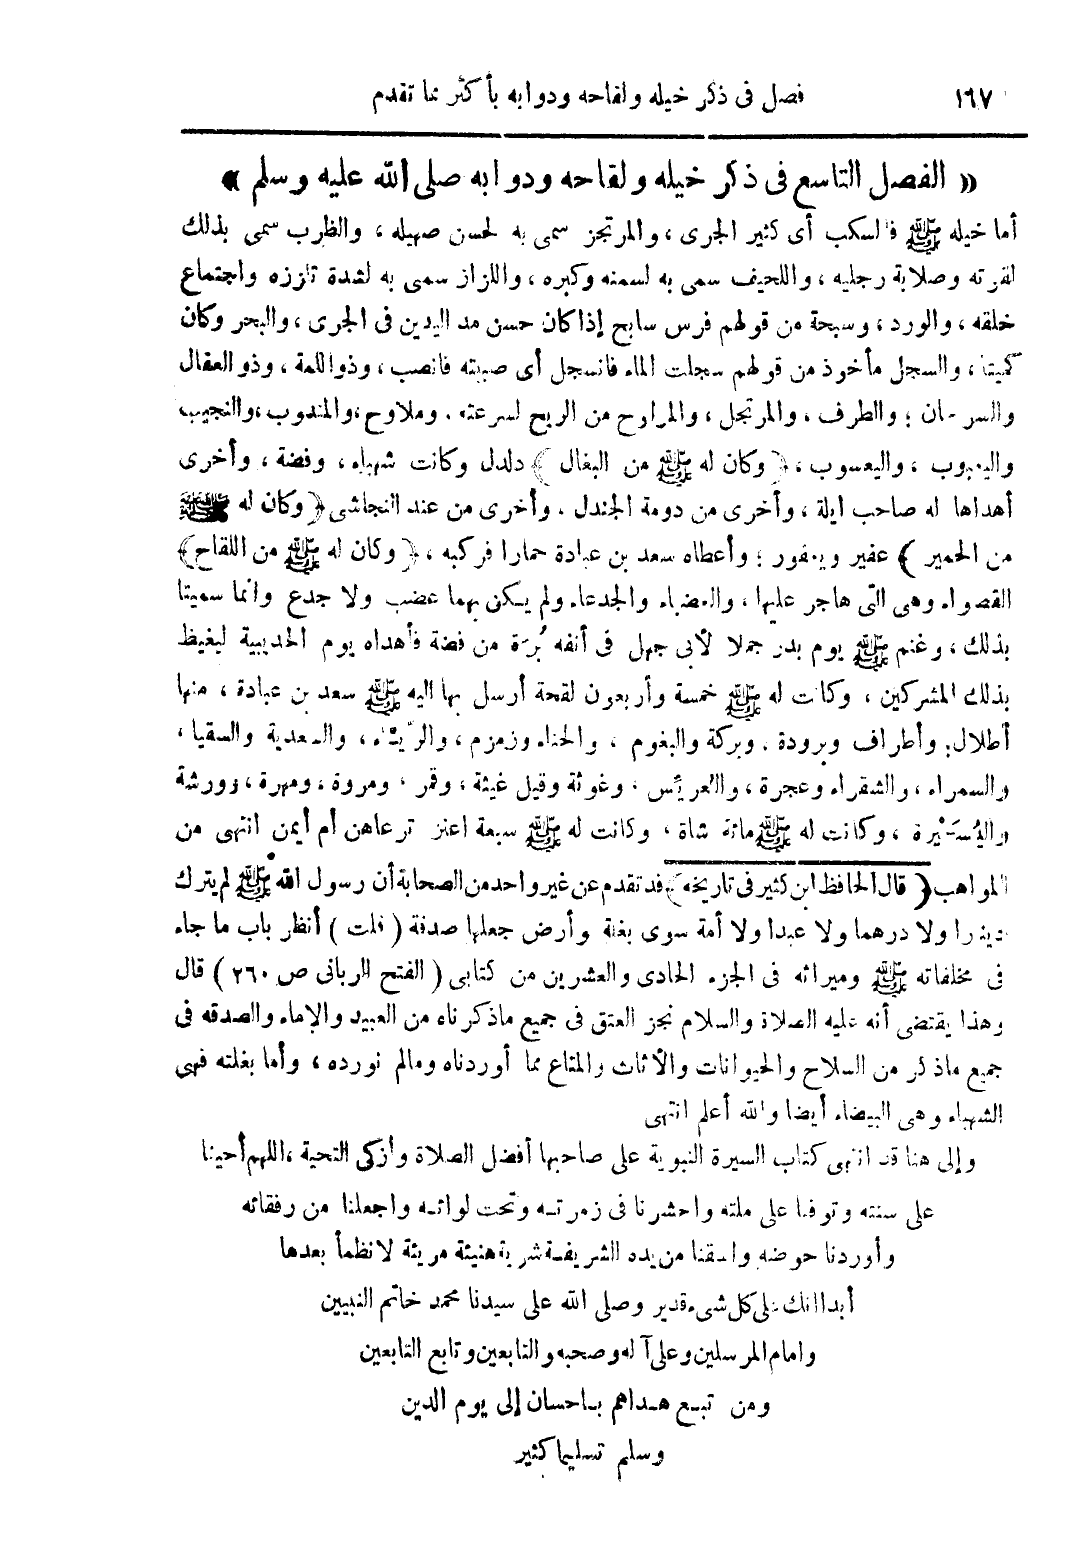 ١٦٧ فصل فى ذكر خيله ولقاحه ودوابه بأكثر مما تقدم
« الفصل التاسع فى ذكر خيله ولقاحه ودوابه صلى الله عليه وسلم »
أما خيله ﷺ فالسكب أى كثير الجرى ، والمرتجز سمى به لحسن صهيله ، والظرب سمى بذلك
لقوته وصلابة رجليه ، واللحيف سمى به لسمنه وكبره ، واللزاز سمى به لشدة تلززه واجتماع
خلقه ، والورد ، وسبحة من قولهم فرس سابح إذا كان حسن مد اليدين فى الجرى ، والبحر وكان
كميتا ، والسجل مأخوذ من قولهم سجلت الماء فانسجل أى صببته فانصب ، وذو اللمة ، وذو العقال
والسرحان ؛ والطرف ، والمرتجل ، والمراوح من الريح لسرعته . وملاوح ، والمندوب ، والنجيب
واليعبوب ، واليعسوب ، ﴿ وكان له ﷺ من البغال ﴾ دلدل وكانت شهباء ، وفضة ، وأخرى
أهداها له صاحب ايلة ، وأخرى من دومة الجندل . وأخرى من عند النجاشى ﴿ وكان له ﷺ
من الحمير ﴾ عفير ويعفور ؛ وأعطاه سعد بن عبادة حمارا فركبه ، ﴿ وكان له ﷺ من اللقاح ﴾
القصواء وهى التى هاجر عليها ، والعضباء والجدعاء ولم يكن بهما عضب ولا جدع وانما سميتا
بذلك ، وغنم ﷺ يوم بدر جملا لأبى جهل فى أنفه بُرَة من فضة فأهداه يوم الحديبية ليغيظ
بذلك المشركين ، وكانت له ﷺ خمسة وأربعون لقحة أرسل بها اليه ﷺ سعد بن عبادة ، منها
أطلال: وأطراف وبرودة . وبركة والبغوم ، والحناء وزمزم ، والريّاء ، والسعدية والسقيا ،
والسمراء ، والشقراء وعجرة ، والعريّس ، وغوثة وقيل غيثة ، وقمر ، ومروة ، ومهرة ، وورشة
واليُسَيْرة ، وكانت له ﷺ مائة شاة ، وكانت له ﷺ سبعة اعنز ترعاهن أم أيمن انتهى من
المواهب ﴿ قال الحافظ ابن كثير فى تاريخه ﴾ قد تقدم عن غير واحد من الصحابة أن رسول الله ﷺ لم يترك
دينارا ولا درهما ولا عبدا ولا أمة سوى بغلة وأرض جعلها صدقة ( قلت ) أنظر باب ما جاء
فى مخلفاته ﷺ وميراثه فى الجزء الحادى والعشرين من كتابى ( الفتح الربانى ص ٢٦٠ ) قال
وهذا يقتضى أنه عليه الصلاة والسلام نجز العتق فى جميع ماذكرناه من العبيد والإماء والصدقه فى
جميع ماذكر من السلاح والحيوانات والأثاث والمتاع مما أوردناه ومالم نورده ، وأما بغلته فهى
الشهباء وهى البيضاء أيضا والله أعلم انتهى
وإلى هنا قد انتهى كتاب السيرة النبوية على صاحبها أفضل الصلاة وأزكى التحية ، اللهم أحينا
على سنته وتوفنا على ملته واحشرنا فى زمرته وتحت لوائه واجعلنا من رفقائه
وأوردنا حوضه واسقنا من يده الشريفة شربة هنيئة مريئة لا نظمأ بعدها
أبدا انك على كل شىء قدير وصلى الله على سيدنا محمد خاتم النبيين
وامام المرسلين وعلى آله وصحبه والتابعين وتابع التابعين
ومن تبع هداهم باحسان إلى يوم الدين
وسلم تسليما كثير